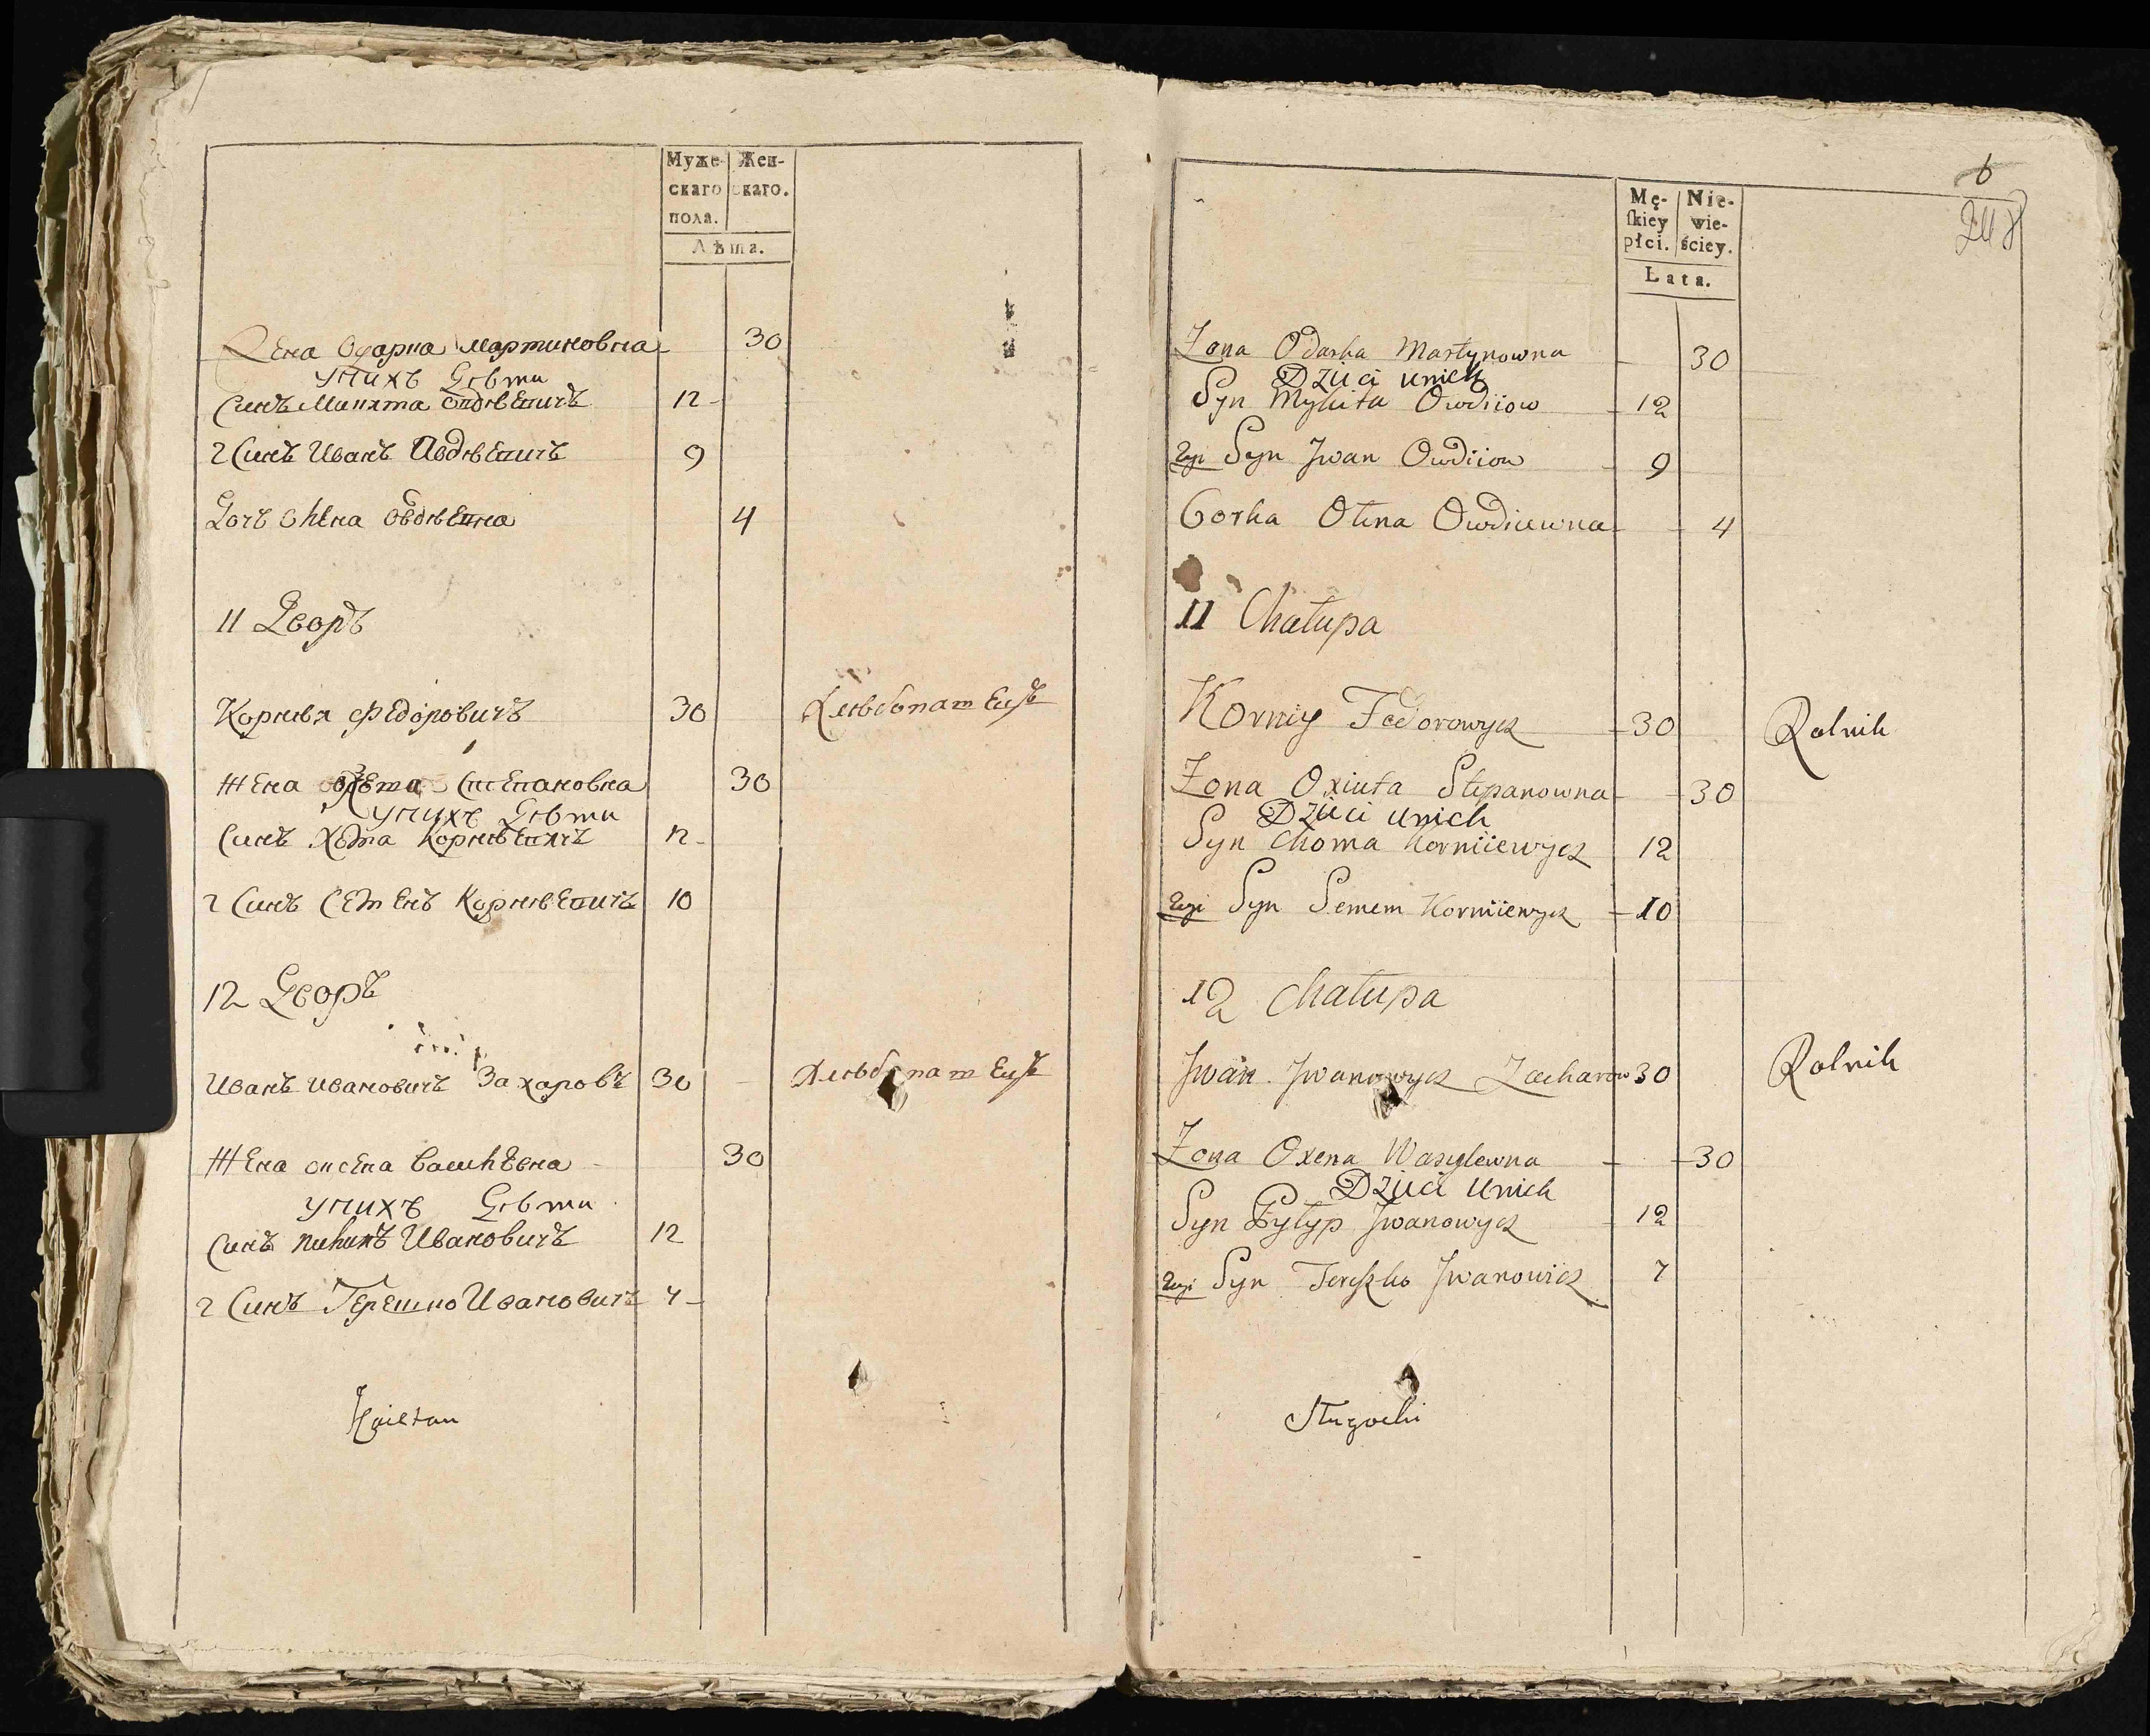 Муже- Жен-
скаго скаго.
пола.
Лѣта.
Жена Одарка Мартиновна 30
У нихъ Дѣти
Синъ Микита Овдѣевичъ 12
2 Синъ Иванъ Авдѣевичъ 9
Дочъ Олена Овдѣевна 4
11 Дворъ
Корнѣй Федоровичъ 30 Хлѣбопашецъ
Жена Степановна 30
У нихъ Дѣти
Синъ Хома Корнѣевичъ 12
2 Синъ Семенъ Корнѣевичъ 10
12 Дворъ
Иванъ Ивановичъ Захаровъ 30 Хлѣбопашецъ
Жена Оксена Василѣвна 30
У нихъ Дѣти
Синъ Пилипъ Ивановичъ 12
2 Синъ Терешко Ивановичъ 7
Kajetan
6
Mę- Nie-
ſkiey wie-
płci. ściey.
Lata.
Zona Odarka Martynowna 30
Dzieci unich
Syn Mykita Owdiiow 12
2gi Syn Jwan Owdiiow 9
Corka Olena Owdiewna 4
11 Chałupa
Korniy Fedorowycz 30 Rolnik
Zona Oxiuta Stepanowna 30
Dzieci unich
Syn Choma Korniiewycz 12
2gi Syn Semem Korniiewycz 10
12 Chałupa
Jwan Jwanowycz Zacharow 30 Rolnik
Zona Oxena Wasylewna 30
Dzieci unich
Syn Pylyp Jwanowycz 12
2gi Syn Tereszko Jwanowicz 7